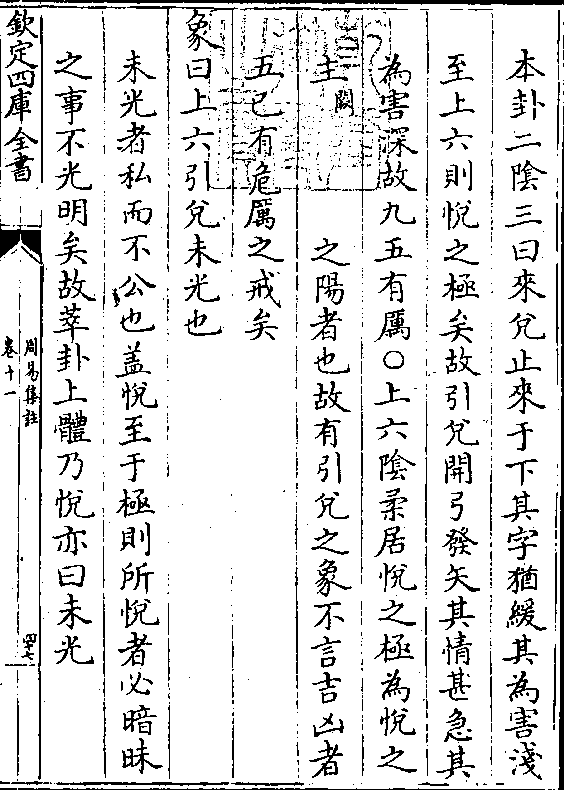 本卦二陰三曰來兌止來于下其字猶緩其為害淺
至上六則悅之極矣故引兌開弓發矢其情甚急其
為害深故九五有厲○上六陰柔居悅之極為悅之
主闕之陽者也故有引兌之象不言吉凶者
五已有危厲之戒矣
象曰上六引兌未光也
未光者私而不公也蓋悅至于極則所悅者必暗昧
之事不光明矣故萃卦上體乃悅亦曰未光
欽定四庫全書
周易集註
卷十一
四十七